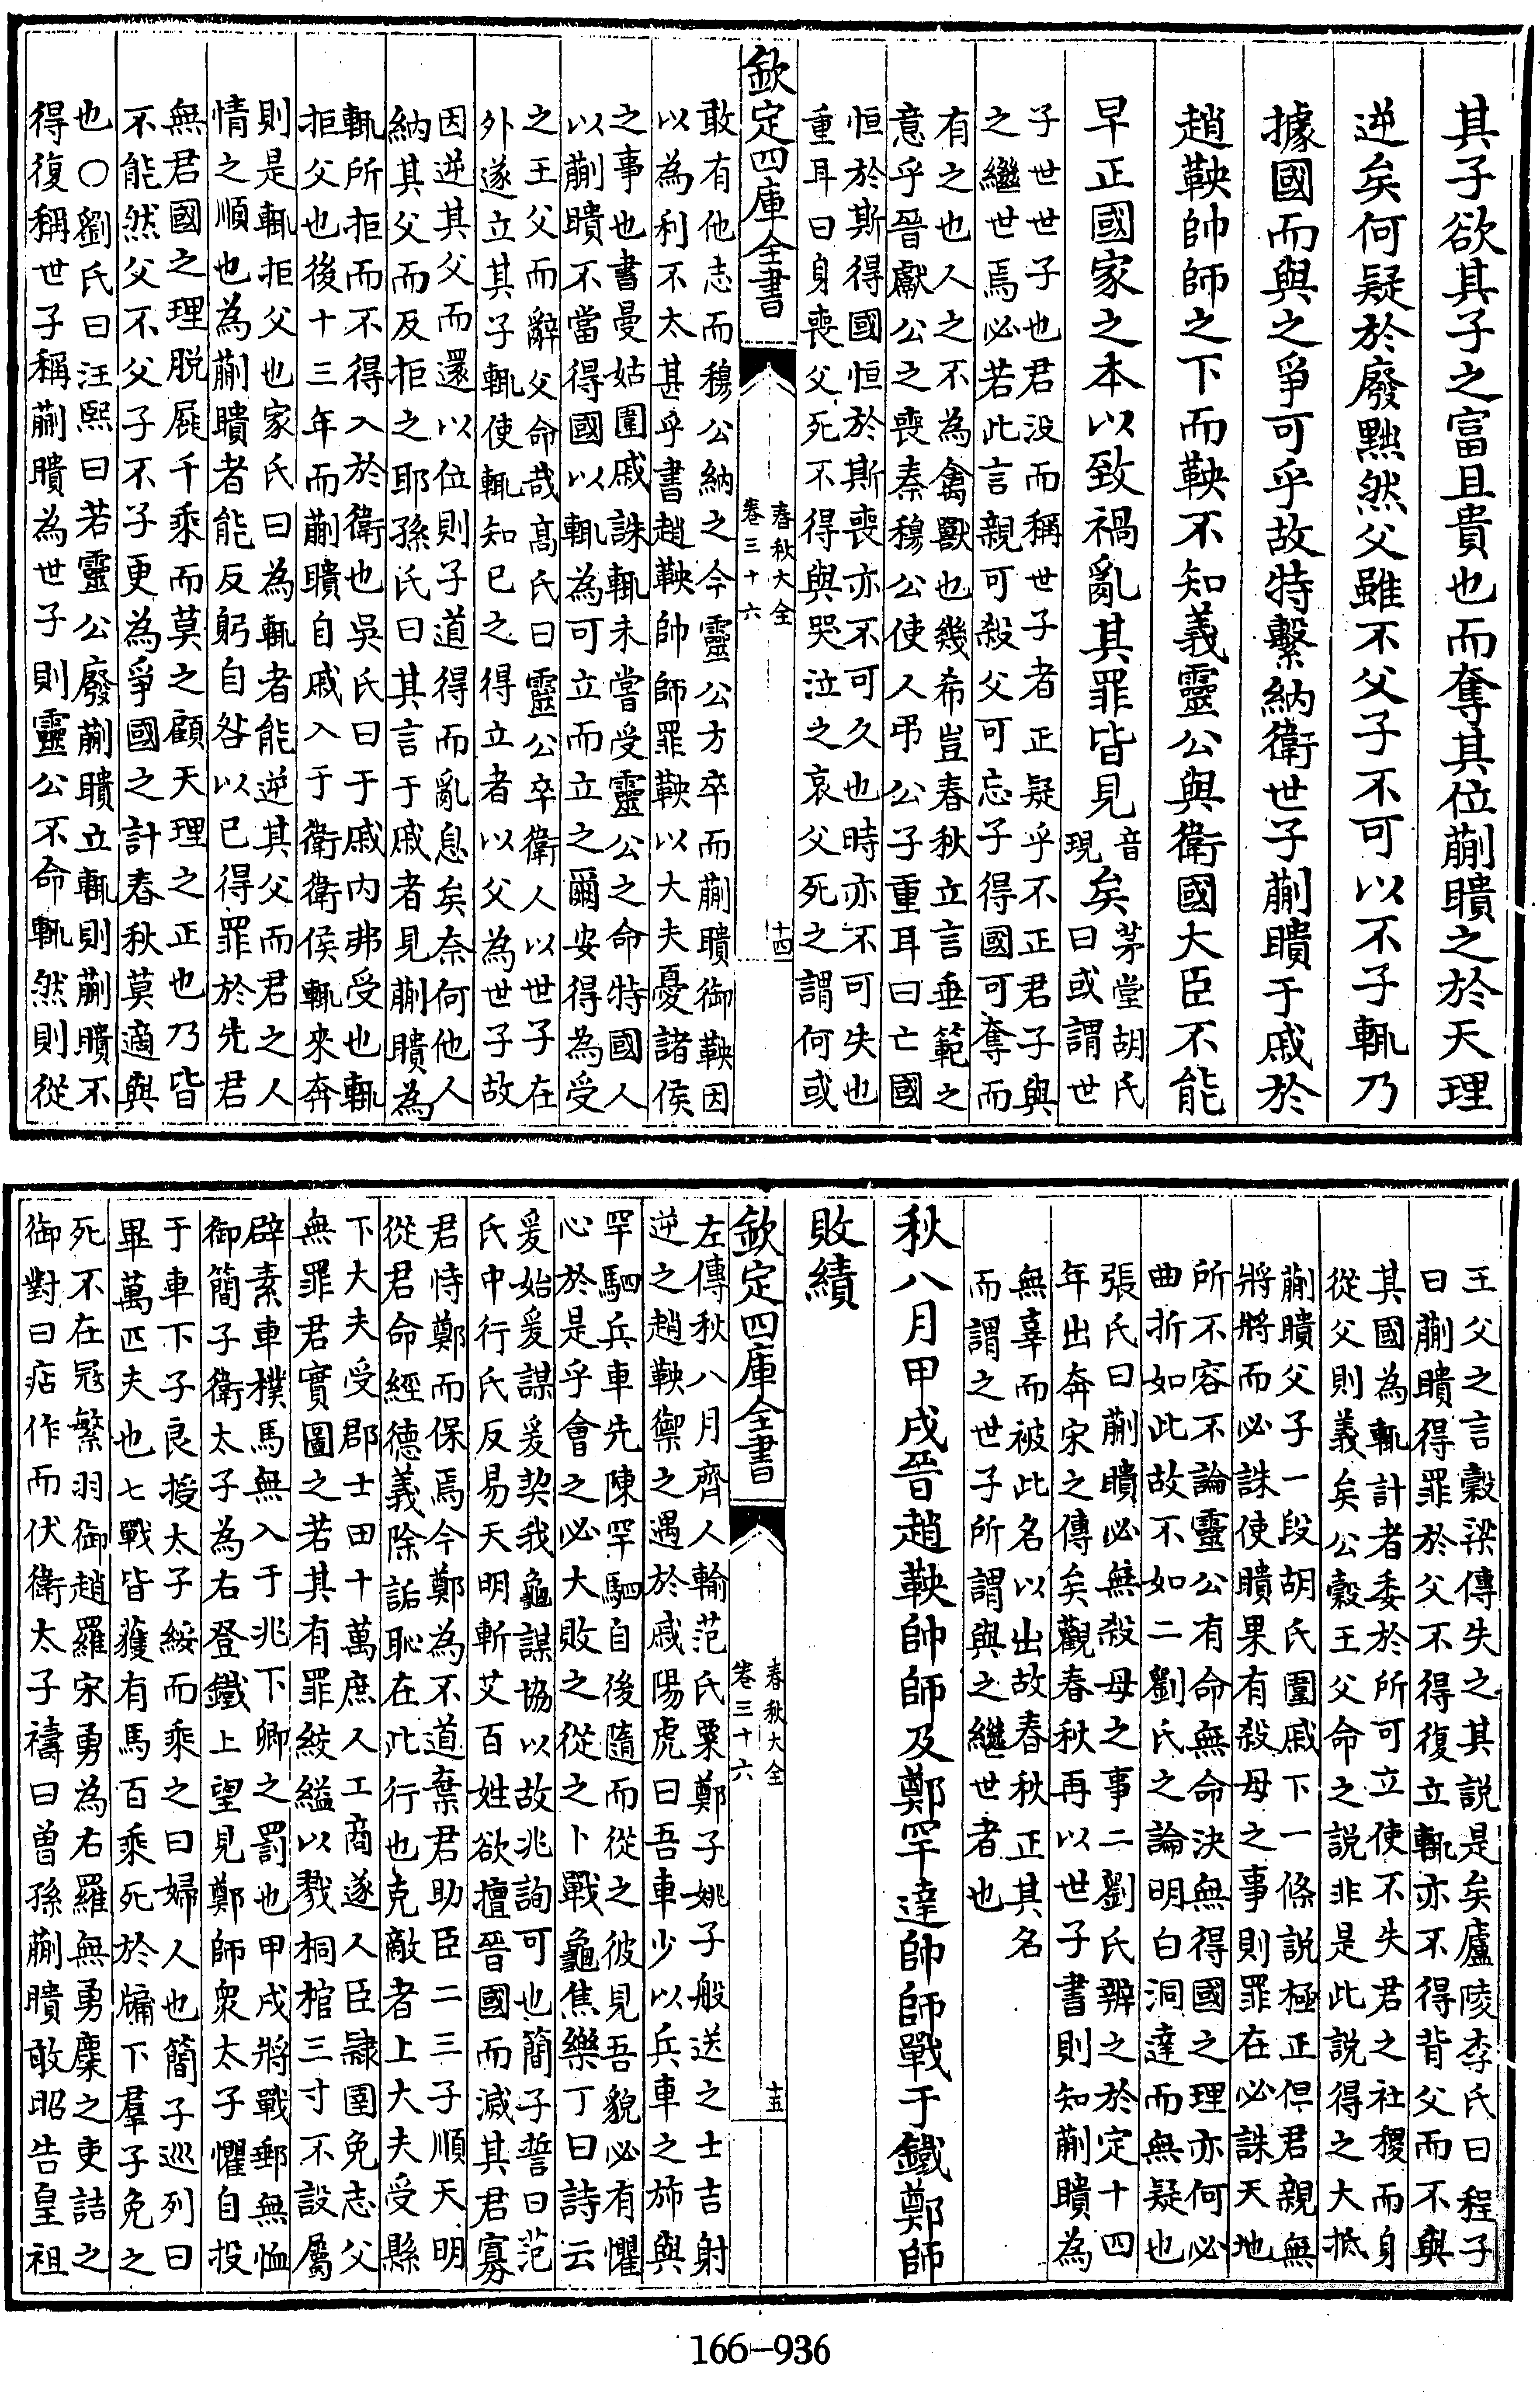 其子欲其子之富且貴也而奪其位蒯聵之於天理
逆矣何疑於廢黜然父雖不父子不可以不子輒乃
據國而與之爭可乎故特繫納衛世子蒯聵于戚於
趙鞅帥師之下而鞅不知義靈公與衛國大臣不能
早正國家之本以致禍亂其罪皆見音現矣茅堂胡氏曰或謂世
子世世子也君没而稱世子者正疑乎不正君子與
之繼世焉必若此言親可殺父可忘子得國可奪而
有之也人之不為禽獸也幾希豈春秋立言垂範之
意乎晉獻公之喪秦穆公使人弔公子重耳曰亡國
恒於斯得國恒於斯喪亦不可久也時亦不可失也
重耳曰身喪父死不得與哭泣之哀父死之謂何或
欽定四庫全書
春秋大全
卷三十六
十四
敢有他志而穆公納之今靈公方卒而蒯聵御鞅因
以為利不太甚乎書趙鞅帥師罪鞅以大夫憂諸侯
之事也書曼姑圍戚誅輒未嘗受靈公之命特國人
以蒯聵不當得國以輒為可立而立之爾安得為受
之王父而辭父命哉髙氏曰靈公卒衛人以世子在
外遂立其子輒使輒知已之得立者以父為世子故
因逆其父而還以位則子道得而亂息矣奈何他人
納其父而反拒之耶孫氏曰其言于戚者見蒯聵為
輒所拒而不得入於衛也吳氏曰于戚内弗受也輒
拒父也後十三年而蒯聵自戚入于衛衛侯輒來奔
則是輒拒父也家氏曰為輒者能逆其父而君之人
情之順也為蒯聵者能反躬自咎以已得罪於先君
無君國之理脱屣千乘而莫之顧天理之正也乃皆
不能然父不父子不子更為爭國之計春秋莫適與
也○劉氏曰汪熙曰若靈公廢蒯聵立輒則蒯聵不
得復稱世子稱蒯聵為世子則靈公不命輒然則從
王父之言穀梁傳失之其説是矣廬陵李氏曰程子
曰蒯聵得罪於父不得復立輒亦不得背父而不與
其國為輒計者委於所可立使不失君之社稷而身
從父則義矣公穀王父命之說非是此說得之大抵
蒯聵父子一段胡氏圍戚下一條説極正但君親無
將將而必誅使聵果有殺母之事則罪在必誅天地
所不容不論靈公有命無命決無得國之理亦何必
曲折如此故不如二劉氏之論明白洞達而無疑也
張氏曰蒯聵必無殺母之事二劉氏辨之於定十四
年出奔宋之傳矣觀春秋再以世子書則知蒯聵為
無辜而被此名以出故春秋正其名
而謂之世子所謂與之繼世者也
秋八月甲戌晉趙鞅帥師及鄭罕達帥師戰于鐵鄭師
敗績
欽定四庫全書
春秋大全
卷三十六
十五
左傳秋八月齊人輸范氏粟鄭子姚子般送之士吉射
逆之趙鞅禦之遇於戚陽虎曰吾車少以兵車之斾與
罕駟兵車先陳罕駟自後隨而從之彼見吾貌必有懼
心於是乎會之必大敗之從之卜戰龜焦樂丁曰詩云
爰始爰謀爰契我龜謀協以故兆詢可也簡子誓曰范
氏中行氏反易天明斬艾百姓欲擅晉國而滅其君寡
君恃鄭而保焉今鄭為不道棄君助臣二三子順天明
從君命經德義除詬恥在此行也克敵者上大夫受縣
下大夫受郡士田十萬庶人工商遂人臣隷圉免志父
無罪君實圖之若其有罪絞縊以戮桐棺三寸不設屬
辟素車樸馬無入于兆下卿之罰也甲戌將戰郵無恤
御簡子衛太子為右登鐵上望見鄭師眾太子懼自投
于車下子良授太子綏而乘之曰婦人也簡子巡列曰
畢萬匹夫也七戰皆獲有馬百乘死於牖下羣子免之
死不在冦繁羽御趙羅宋勇為右羅無勇麇之吏詰之
御對曰痁作而伏衛太子禱曰曽孫蒯聵敢昭告皇祖
166-936